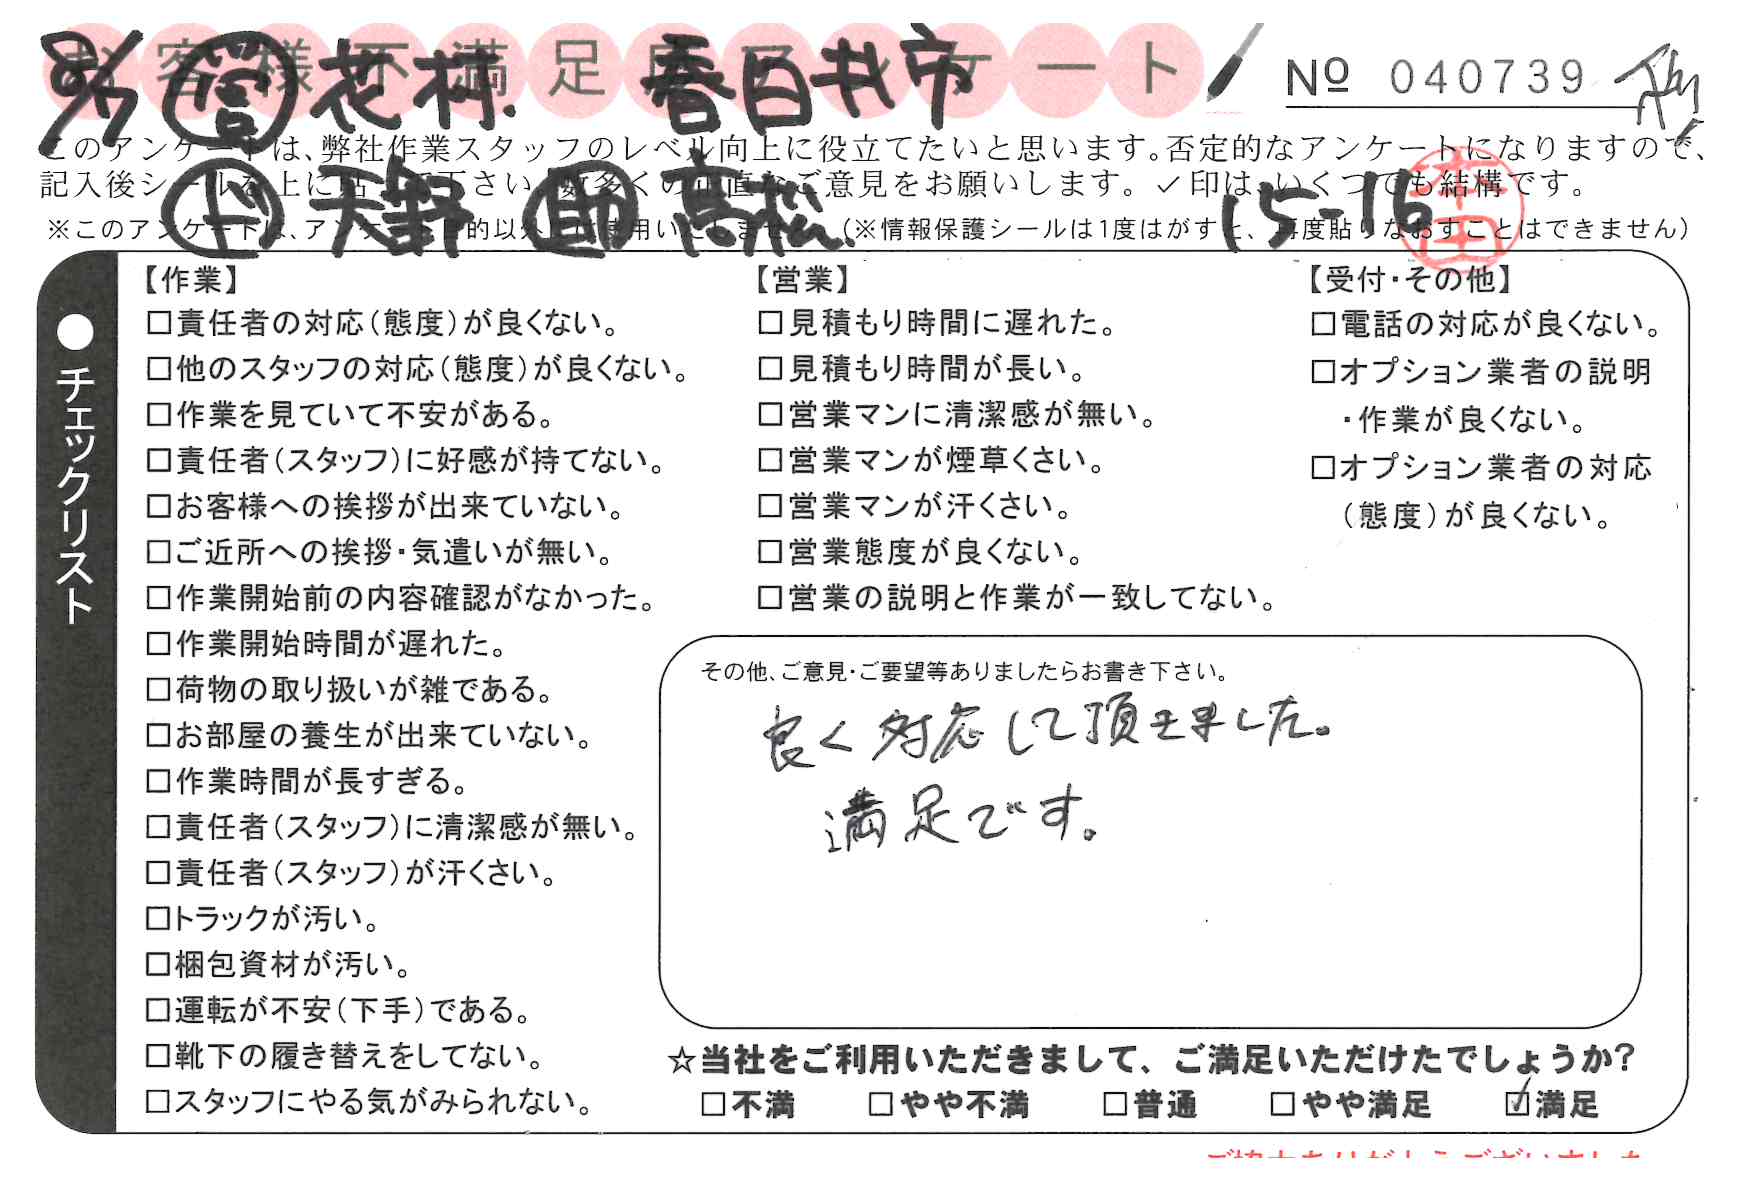 お客様不満足度アンケート
No 040739
8/7 営 花村 春日井市
このアンケートは、弊社作業スタッフのレベル向上に役立てたいと思います。否定的なアンケートになりますので、
記入後シールを上に貼って下さい。数多くの正直なご意見をお願いします。✓印は、いくつでも結構です。
ド 天野 助 高松 15-16
※このアンケートは、アンケート目的以外には使用いたしません。(※情報保護シールは1度はがすと、再度貼りなおすことはできません)
●チェックリスト
【作業】
□責任者の対応(態度)が良くない。
□他のスタッフの対応(態度)が良くない。
□作業を見ていて不安がある。
□責任者(スタッフ)に好感が持てない。
□お客様への挨拶が出来ていない。
□ご近所への挨拶・気遣いが無い。
□作業開始前の内容確認がなかった。
□作業開始時間が遅れた。
□荷物の取り扱いが雑である。
□お部屋の養生が出来ていない。
□作業時間が長すぎる。
□責任者(スタッフ)に清潔感が無い。
□責任者(スタッフ)が汗くさい。
□トラックが汚い。
□梱包資材が汚い。
□運転が不安(下手)である。
□靴下の履き替えをしてない。
□スタッフにやる気がみられない。
【営業】
□見積もり時間に遅れた。
□見積もり時間が長い。
□営業マンに清潔感が無い。
□営業マンが煙草くさい。
□営業マンが汗くさい。
□営業態度が良くない。
□営業の説明と作業が一致してない。
【受付・その他】
□電話の対応が良くない。
□オプション業者の説明
・作業が良くない。
□オプション業者の対応
(態度)が良くない。
その他、ご意見・ご要望等ありましたらお書き下さい。
良く対応して頂きました。
満足です。
☆当社をご利用いただきまして、ご満足いただけたでしょうか?
□不満 □やや不満 □普通 □やや満足 ☑満足
ご協力ありがとうございました